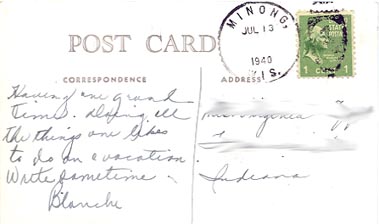 MINONG,
JUL 13
1940
WIS.
POST CARD
1 CENT 1
CORRESPONDENCE
ADDRESS
Having one grand
time. Doing all
the things one likes
to do on a vacation.
Write sometime.
Blanche
Miss Virginia
Indiana